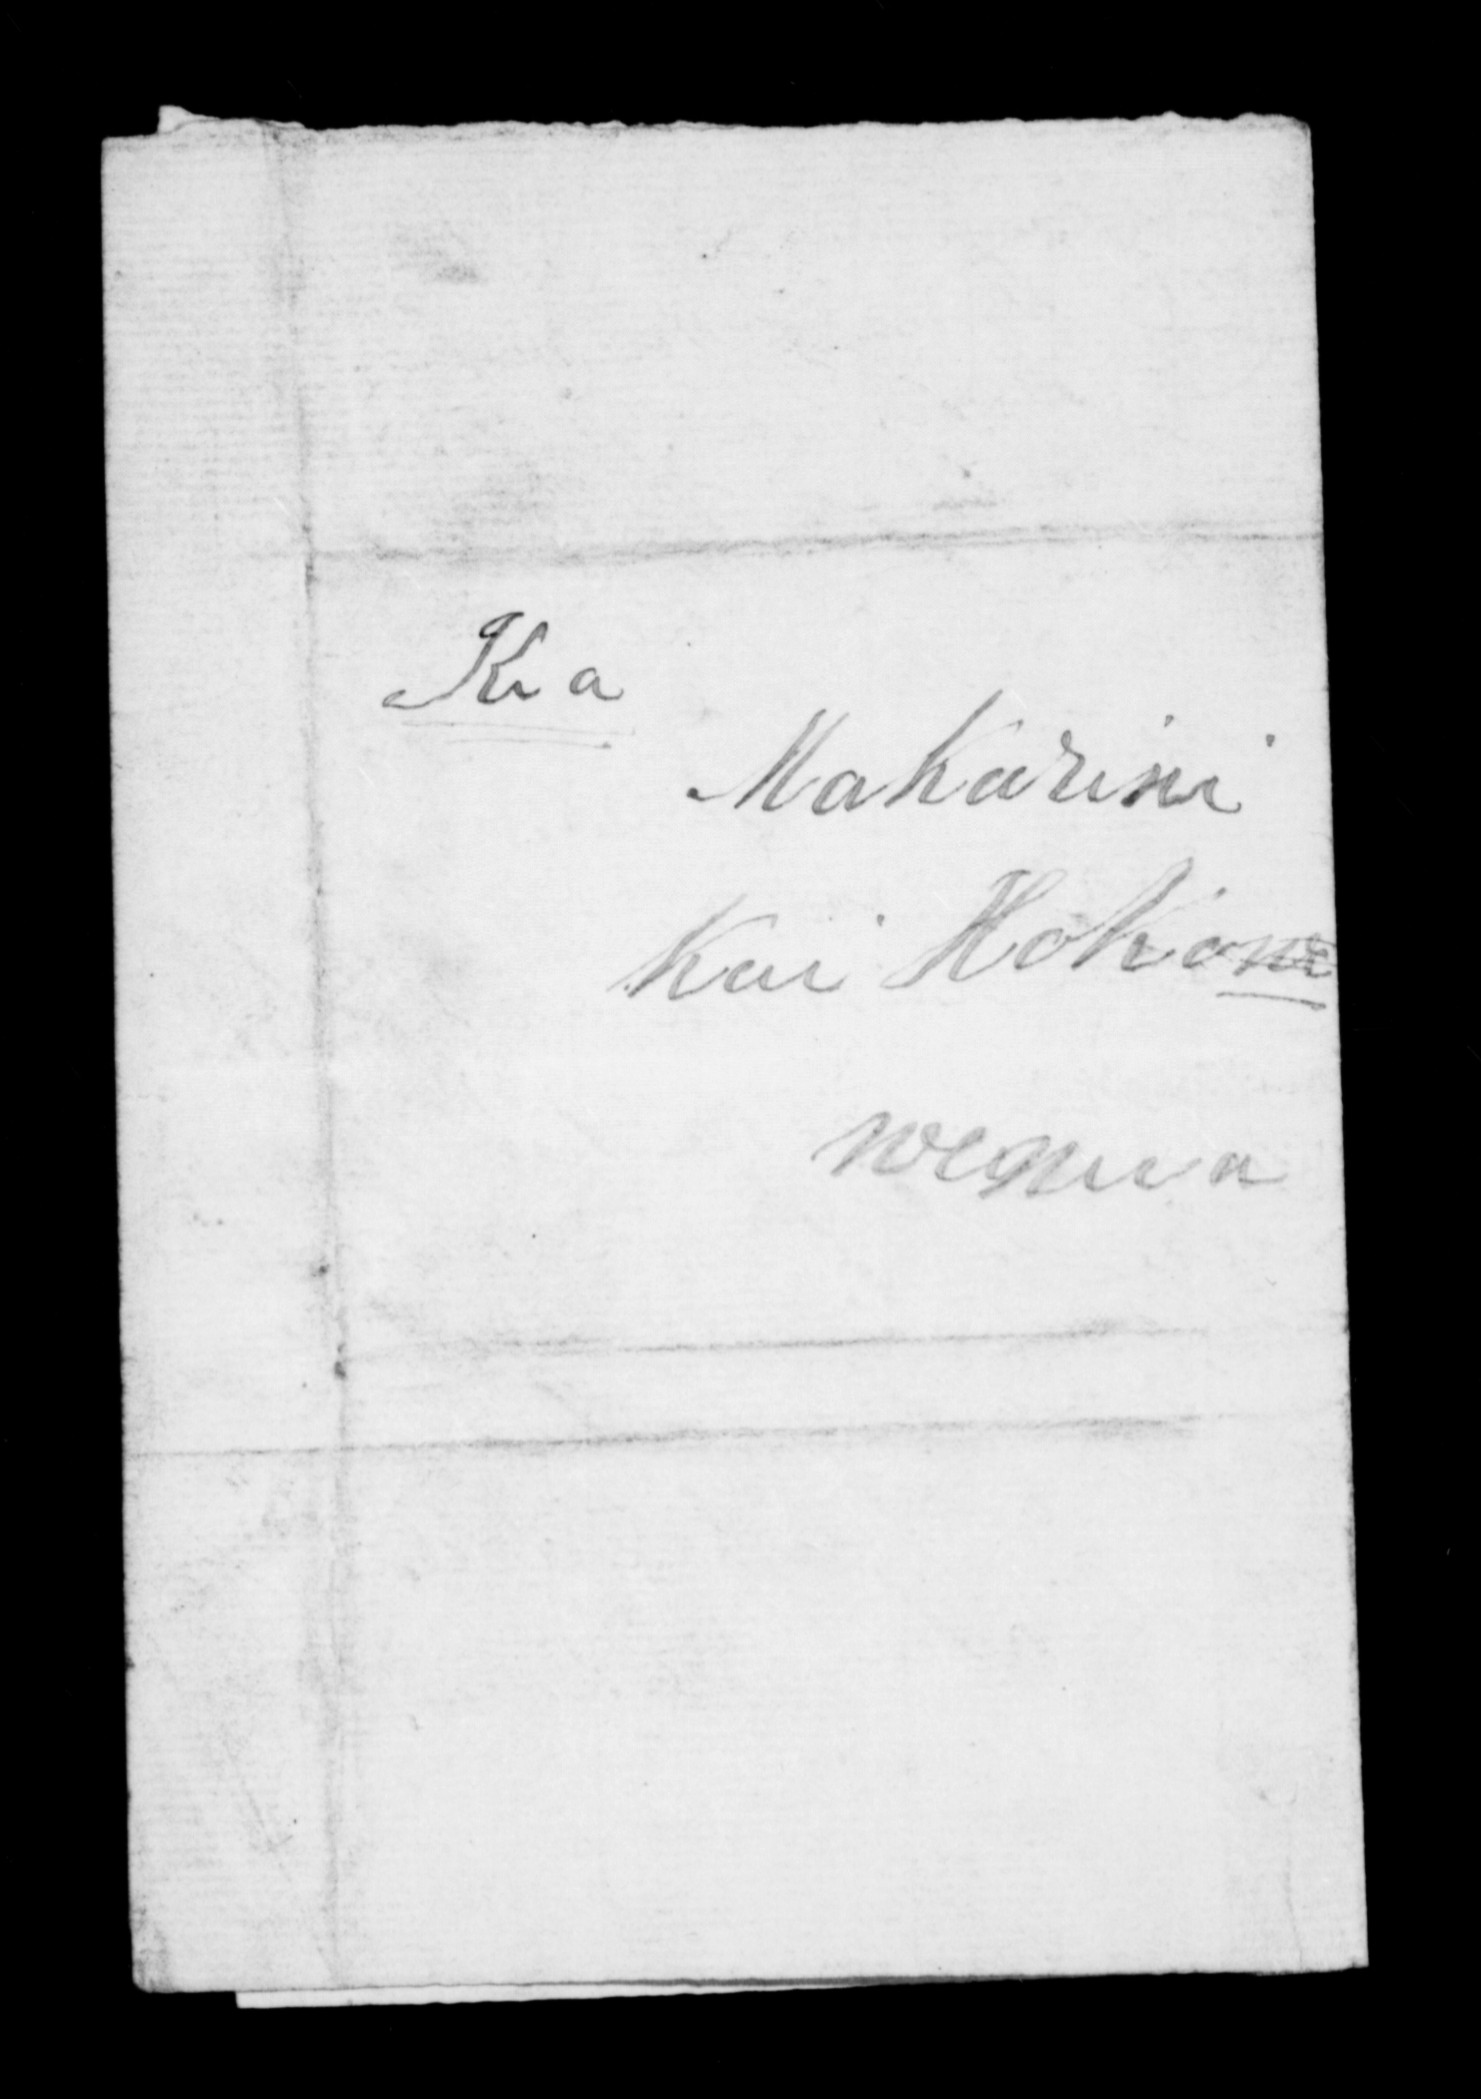 Kia
Makarini
Kai Hokona
wenua